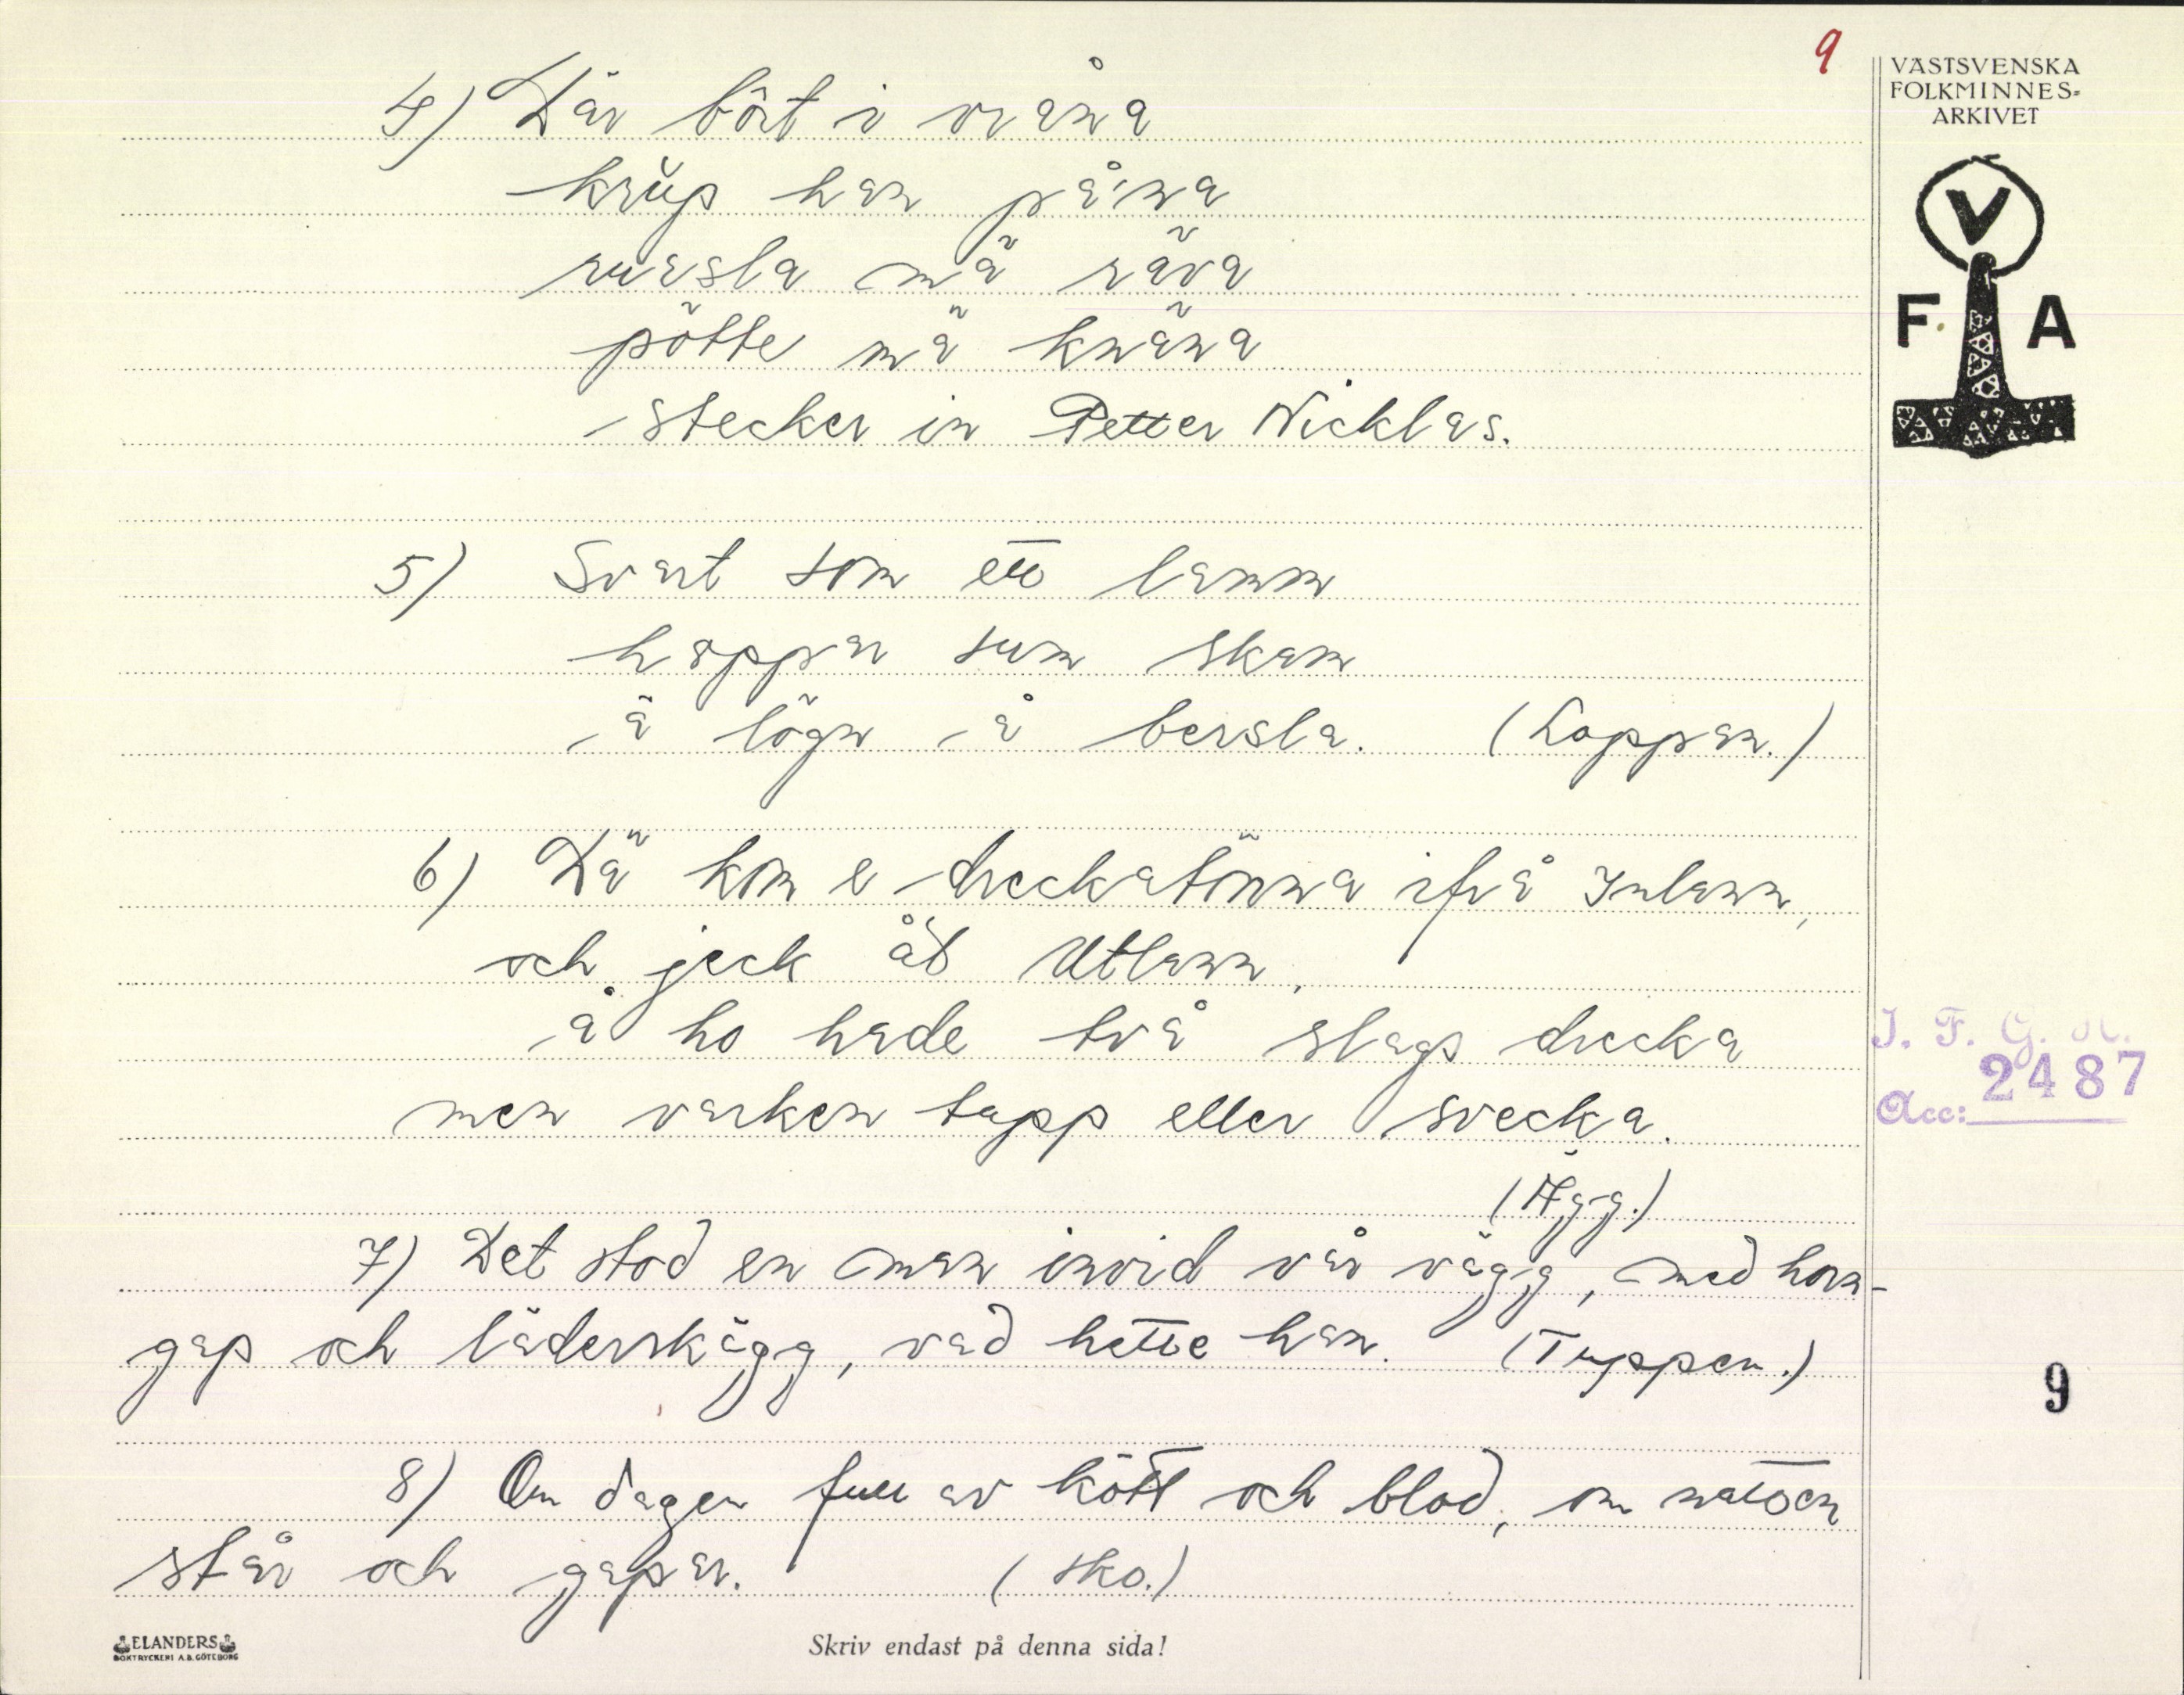 9
VÄSTSVENSKA
FOLKMINNES-
ARKIVET
V
F A
4) Där bôrt i vråna
krüp han på'na
ruasla mä räva
pötte mä knäna
stecker in Petter Nicklas.
5) Svart som ett lamm
hoppar som skam
ä lögn å bersla. (Loppan.)
6) Dä kom e dreckatönna ifrå Inlann,
och jeck åt Utlann,
å ho hade två slags drecka
men varken tapp eller svecka.
(Ägg.)
7) Det stod en man invid vår vägg, med horn-
gap och läderskägg, vad hette han. (Tuppen.)
8) Om dagen full av kött och blod, om natten
står och gapar. (sko.)
I. F. G. H.
Acc: 2487
9
ELANDERS
BOKTRYCKERI A.B. GÖTEBORG
Skriv endast på denna sida!